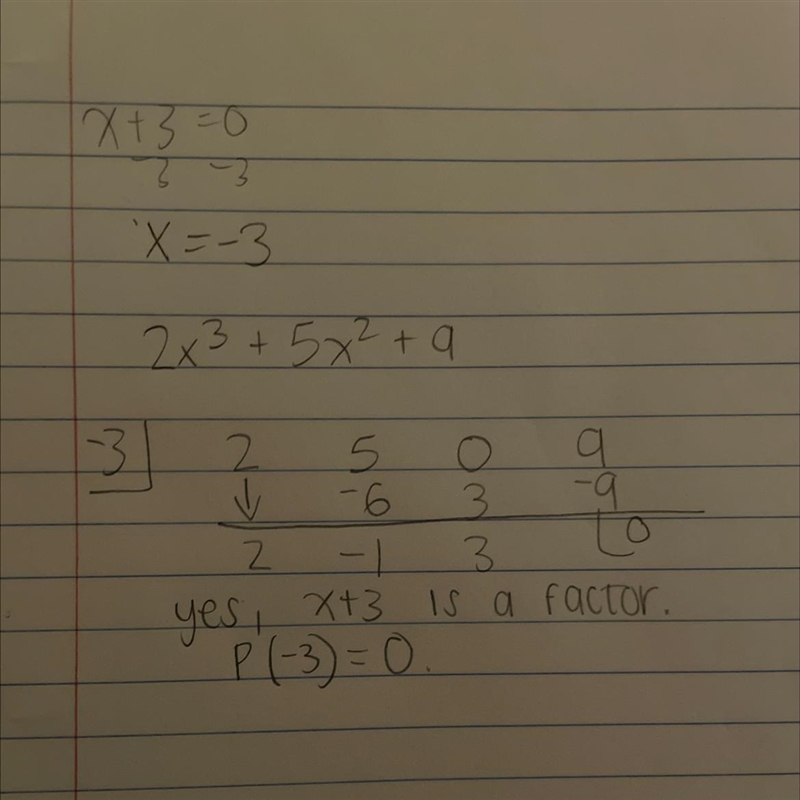 x+3=0
-3 -3
x=-3
2x³+5x²+9
-3 2 5 0 9
↓ -6 3 -9
2 -1 3 0
yes, x+3 is a factor.
P(-3)=0.